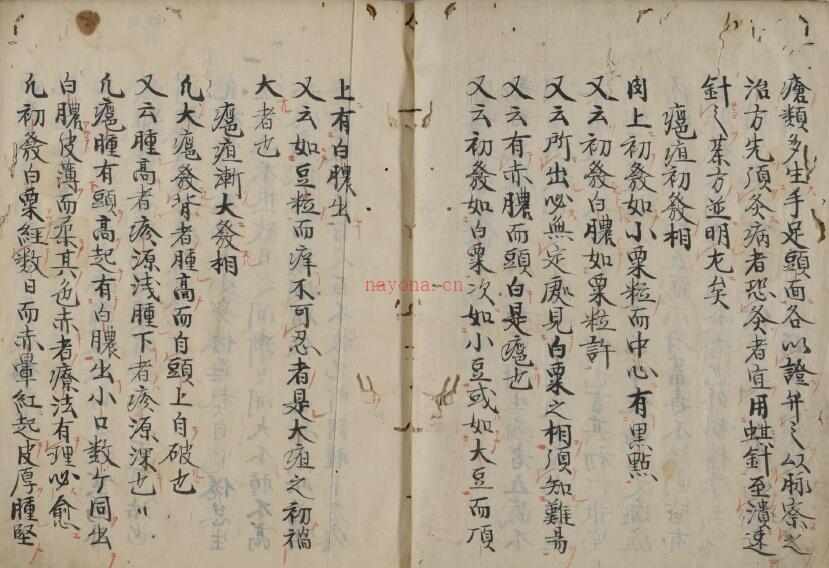 瘡類多生手足頭面各以證弁之以脉察之
治方先須灸病者恐灸者宜用蜞針至潰速
針之茶方並明尤矣
癰疽初發相
肉上初發如小粟粒而中心有黒點
又云初發白膿如粟粒許
又云所出必無定處見白粟之相須知難昜
又云有赤膿而頭白是癰也
又云初發如白粟次如小豆或如大豆而頂
上有白膿出
又云如豆粒而痒不可忍者是大疽之初禍
大者也
癰疽漸大發相
凢大癰發背者腫高而自頭上自破也
又云腫高者疹源浅腫下者疹源深也
凢癰腫有頭高起有白膿出小口数ケ同出
白膿皮薄而柔其色赤者療法有理必愈
凢初發白粟經数日而赤暈紅起皮厚腫堅
nayona.cn